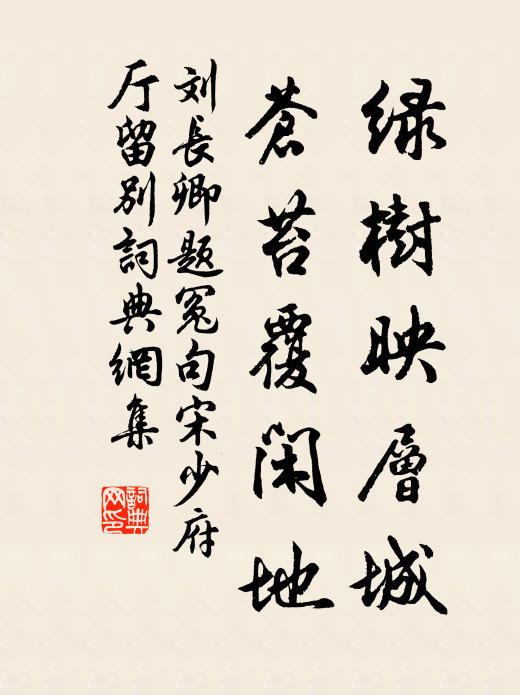 绿樹映層城
蒼苔覆閑地
刘長卿題冤句宋少府
厅留别詞典網集
詞典网印